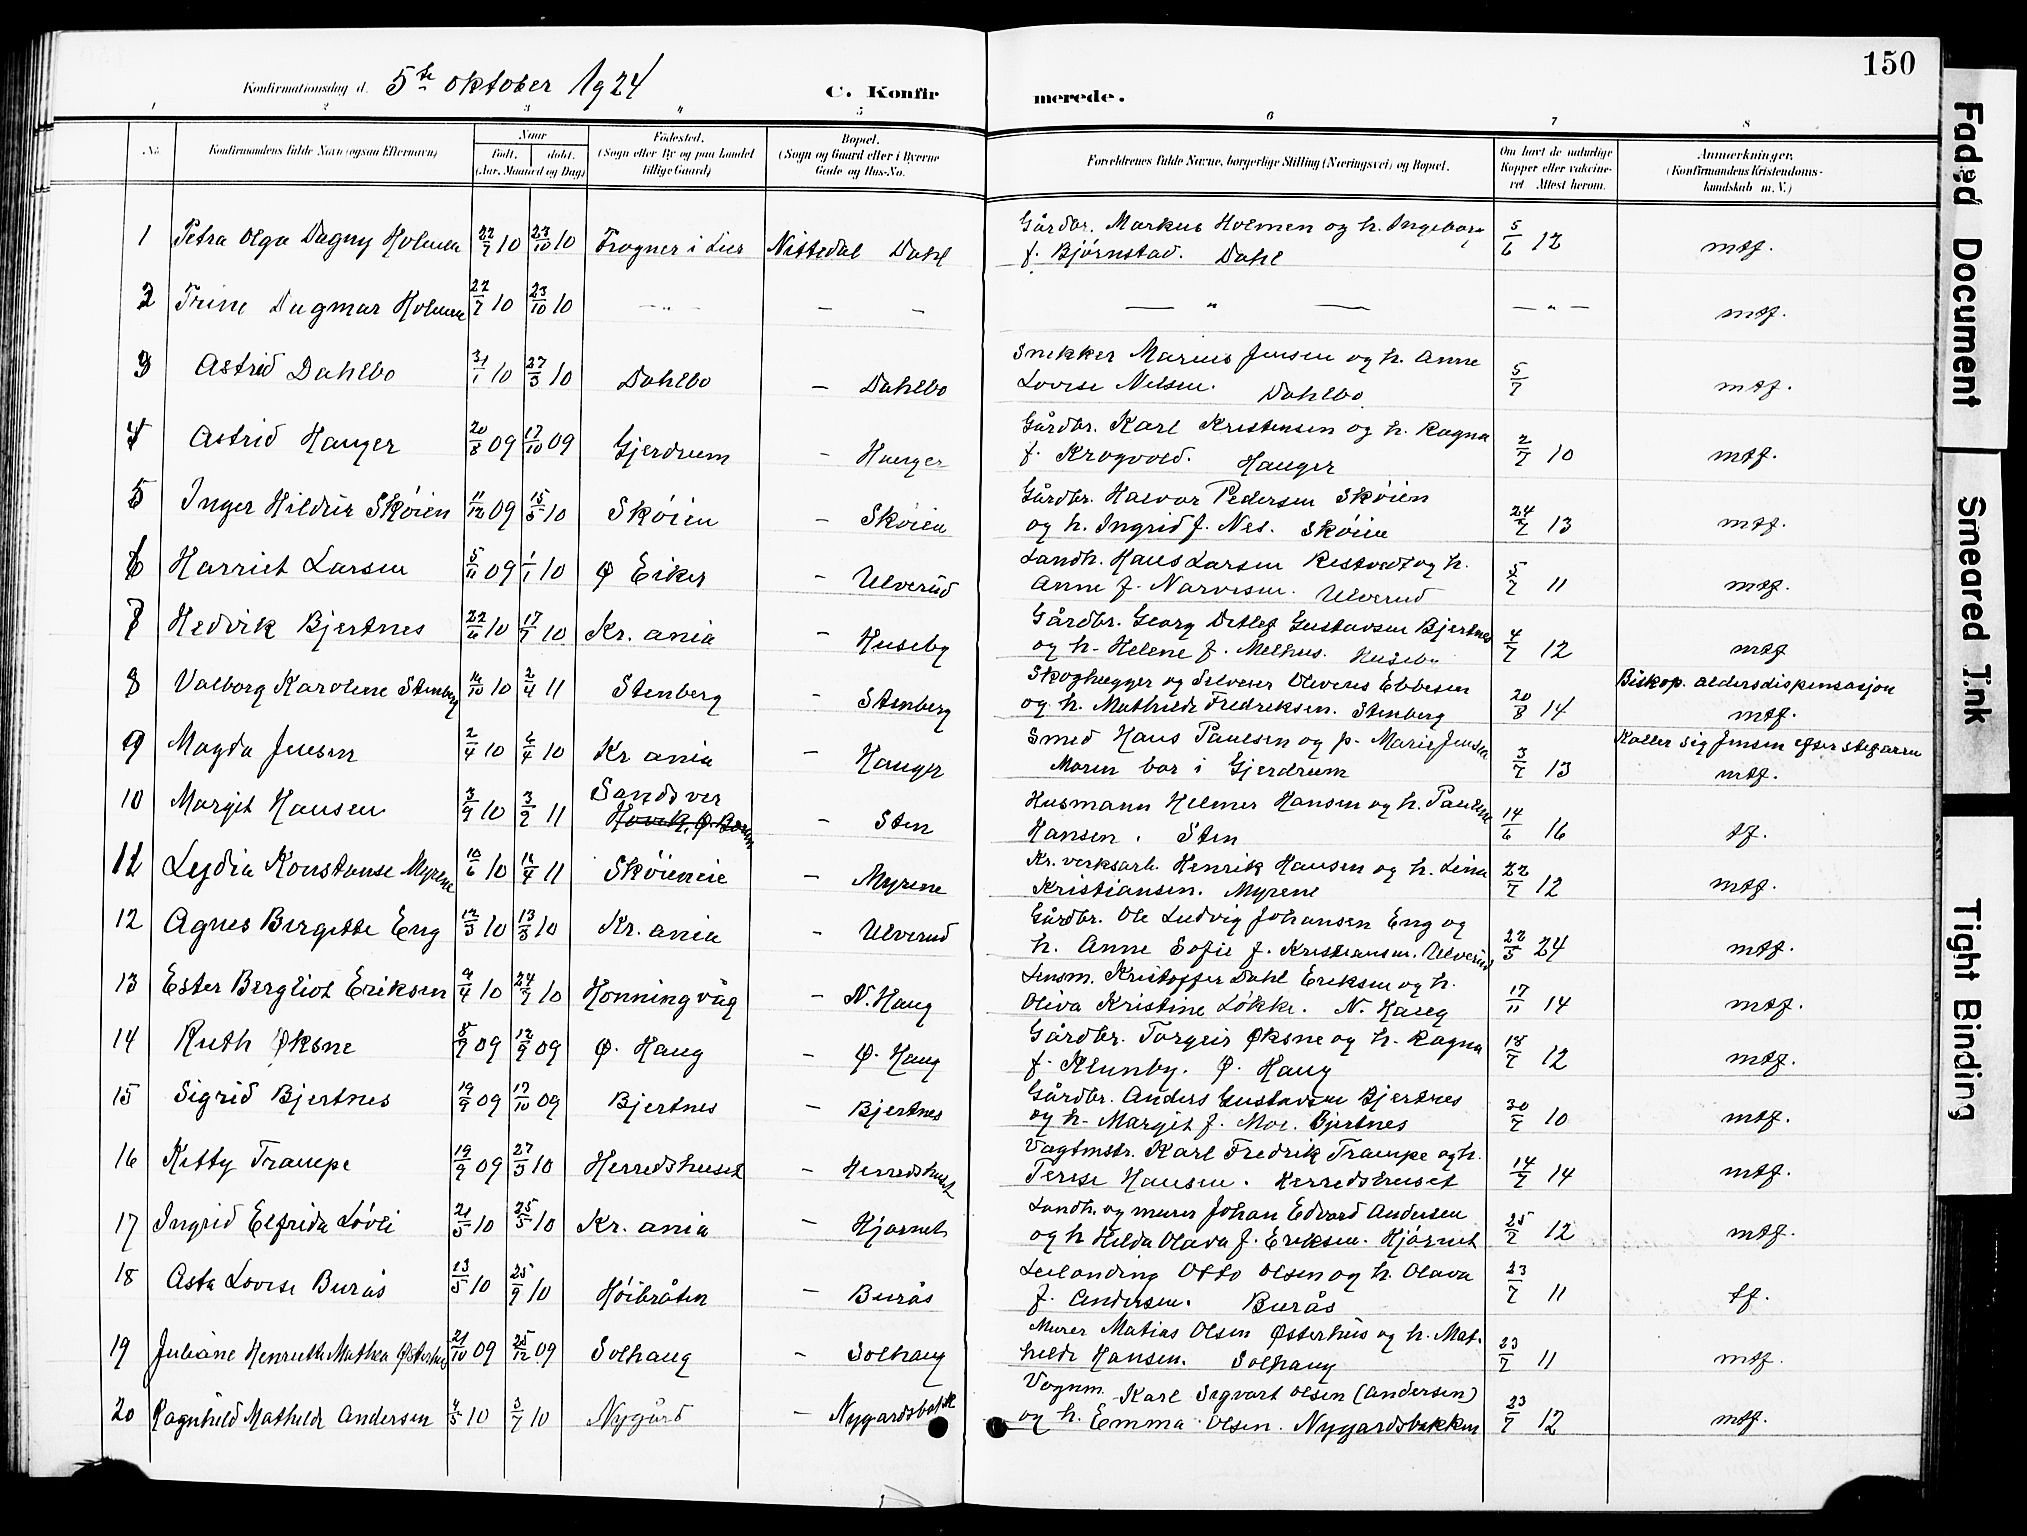 150
Konfirmationsdag d. 5te oktober 1924 C. Konfirmerede.
1 2 3 4 5 6 7 8
No. Konfirmandens fulde Navn (ogsaa Efternavn) Naar født. døbt. (Aar, Maaned og Dag) Fødested. (Sogn eller By og paa Landet tillige Gaard) Bopæl. (Sogn og Gaard eller i Byerne Gade og Hus-No. Forældrenes fulde Navne, borgerlige Stilling (Næringsvei) og Bopæl. Om havt de naturlige Kopper eller vakcineret. Attest herom. Anmærkninger. (Konfirmandens Kristendomskundskab m. V.)
1 Petra Olga Dagny Holmen 22/7 10 23/10 10 Frogner i Lier Nittedal Dahl Gårdbr. Markus Holmen og h. Ingeborg
f. Bjørnstad. Dahl 5/6 12 mtf.
2 Trine Dagmar Holmen 22/7 10 23/10 10 — " — — — — " — — " — mtf.
3 Astrid Dahlbo 31/1 10 27/3 10 Dahlbo — Dahlbo Snekker Marius Jensen og h. Anne
Lovise Nilsen. Dahlbo 5/7 mtf.
4 Astrid Hauger 20/8 09 17/10 09 Gjerdrum — Hauger Gårdbr. Karl Kristensen og h. Ragna
f. Krogvold. Hauger 2/7 10 mtf.
5 Inger Hildur Skøien 11/12 09 15/5 10 Skøien — Skøien Gårdbr. Halvor Pedersen Skøien
og h. Ingrid f. Nes. Skøien 24/7 13 mtf.
6 Harriet Larsen 5/11 09 1/1 10 Ø Eiker — Ulverud Landh. Hans Larsen Restvedt og h.
Anne f. Narvesen. Ulverud 5/7 11 mtf.
7 Hedvik Bjertnes 22/6 10 17/7 10 Kr.ania — Huseby Gårdbr. Georg Detlef Gustavsen Bjertnes
og h. Helene f. Melhus. Huseby 4/7 12 mtf
8 Valborg Karoline Stenberg 14/10 10 2/4 11 Stenberg — Stenberg Skoghugger og Oliver Ebbesen
og h. Mathilde Fredriksen. Stenberg 20/8 14 Biskop. aldersdispensasjon
mtf.
9 Magda Jensen 2/4 10 6/4 10 Kr ania — Hauger Smed Hans Paulsen og p. Marie Jensen
Moren bor i Gjerdrum 3/7 13 Kaller sig Jensen efter stefaren
mtf.
10 Margit Hansen 3/9 10 3/2 11 Sandsver — Sten Husmann Hilmer Hansen og h. Pauline
Hansen. Sten 14/6 16 tf.
11 Lydia Konstanse Myrene 10/6 10 14/4 11 Skøieneie — Myrene Kr. verksarb. Henrik Hansen og h. Lina
Kristiansen. Myrene 22/7 12 mtf.
12 Agnes Bergitte Eng 12/3 10 13/3 10 Kr.ania — Ulverud Gårdbr. Ole Ludvig Johansen Eng og
h. Anne Sofie f. Kristiansen. Ulverud 22/5 24 mtf.
13 Ester Bergliot Eriksen 9/4 10 24/7 10 Honningvåg — N. Haug Lensm. Kristoffer Dahl Eriksen og h.
Oliva Kristine Løkke. N. Haug 17/11 14 mtf.
14 Ruth Øksne 8/7 09 12/9 09 Ø. Haug — Ø. Haug Gårdbr. Torgeir Øksne og h. Ragna
f. Klunby. Ø. Haug 18/7 12 mtf.
15 Sigrid Bjertnes 19/9 09 17/10 09 Bjertnes — Bjertnes Gårdbr. Anders Gustavsen Bjertnes
og h. Margit f. Moe. Bjertnes 30/7 10 mtf.
16 Kitty Trampe 19/9 09 27/3 10 Herredshuset — Herredshuset Vagtmstr. Karl Fredrik Trampe og h.
Terese Hansen. Herredshuset 14/7 14 mtf.
17 Ingrid Elfrida Løvli 21/3 10 25/5 10 Kr. ania — Hjørnet Landh. og murer Johan Edvard Andersen
og h Hilda Olava f. Eriksen. Hjørnet 25/7 12 mtf.
18 Asta Lovise Burås 13/5 10 25/9 10 Høibråten — Burås Leilending Otto Olsen og h. Olava
f. Andersen. Burås 23/7 11 tf.
19 Juliane Henriette Mathea Østerhus 21/10 09 25/12 09 Solhaug — Solhaug Murer Matias Olsen Østerhus og h. Mathilde
Hansen. Solhaug 23/7 11 mtf.
20 Ragnhild Mathilde Andersen 4/5 10 3/7 10 Nygård — Nygardsbakk Vognm. Karl Sigvart Olsen (Andersen)
og h. Emma Olsen. Nygardsbakken 23/7 12 mtf.
Faded Document
Smeared Ink
Tight Binding